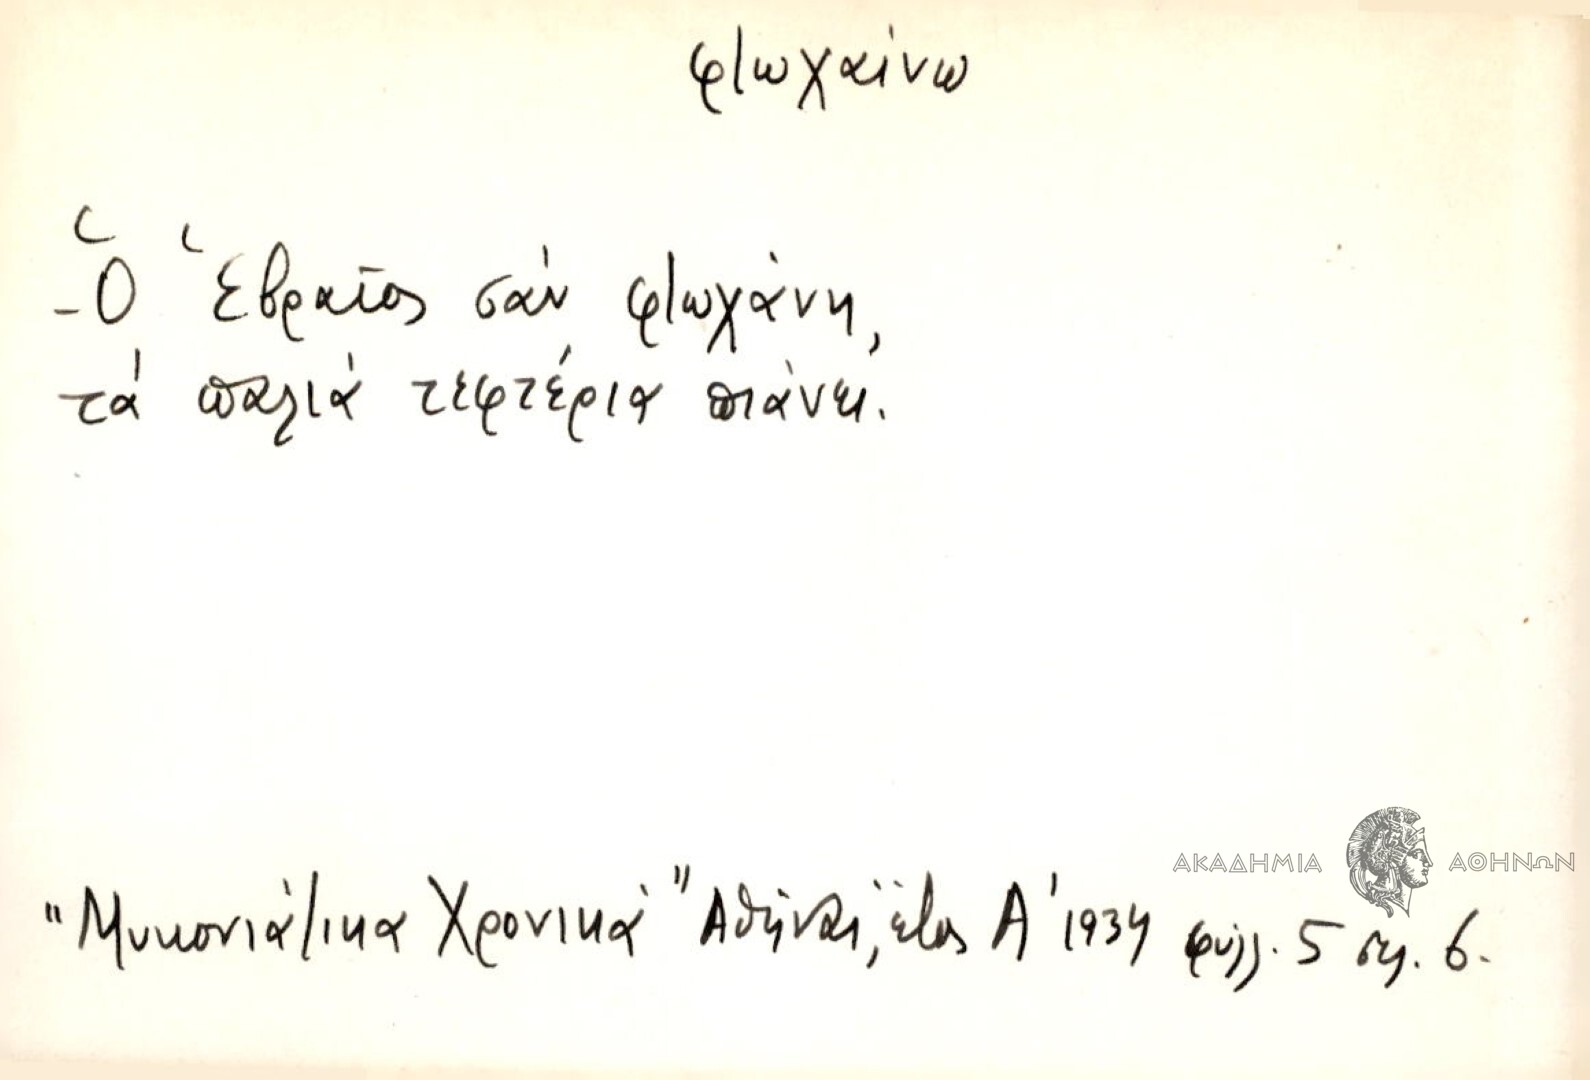 φτωχαίνω
- Ὁ Ἑβραῖος σάν φτωχάνη,
τά παλιά τεφτέρια πιάνει.
ΑΚΑΔΗΜΙΑ ΑΘΗΝΩΝ
"Μυκονιάτικα Χρονικά" Ἀθῆναι, ἔτος Α' 1934 φύλλ. 5 σελ. 6.